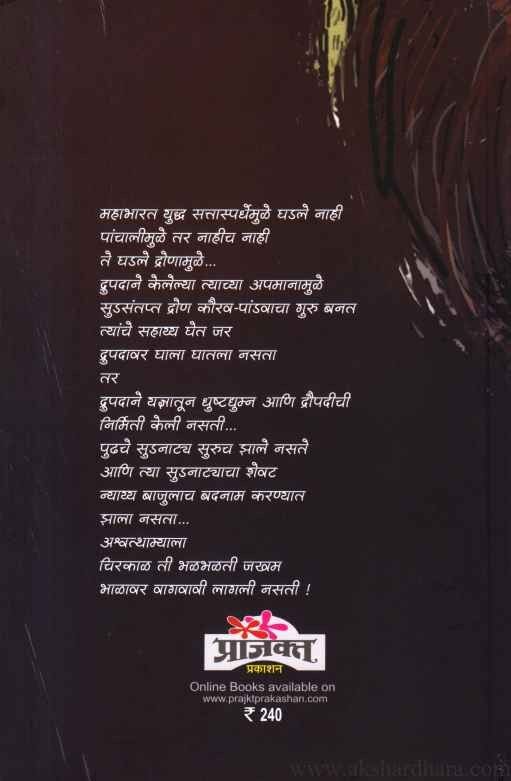 महाभारत युद्ध सत्तास्पर्धेमुळे घडले नाही
पांचालीमुळे तर नाहीच नाही
ते घडले द्रोणामुळे...
द्रुपदाने केलेल्या त्याच्या अपमानामुळे
सुडसंतप्त द्रोण कौरव-पांडवाचा गुरु बनत
त्यांचे सहाय्य घेत जर
द्रुपदावर घाला घातला नसता
तर
द्रुपदाने यज्ञातून धुष्टद्युम्न आणि द्रौपदीची
निर्मिती केली नसती...
पुढचे सुडनाट्य सुरुच झाले नसते
आणि त्या सुडनाट्याचा शेवट
न्याय्य बाजुलाच बदनाम करण्यात
झाला नसता...
अश्वत्थाम्याला
चिरकाळ ती भळभळती जखम
भाळावर वागवावी लागली नसती !
प्राजक्त
प्रकाशन
Online Books available on
www.prajktprakashan.com
₹ 240
www.akshardhara.com